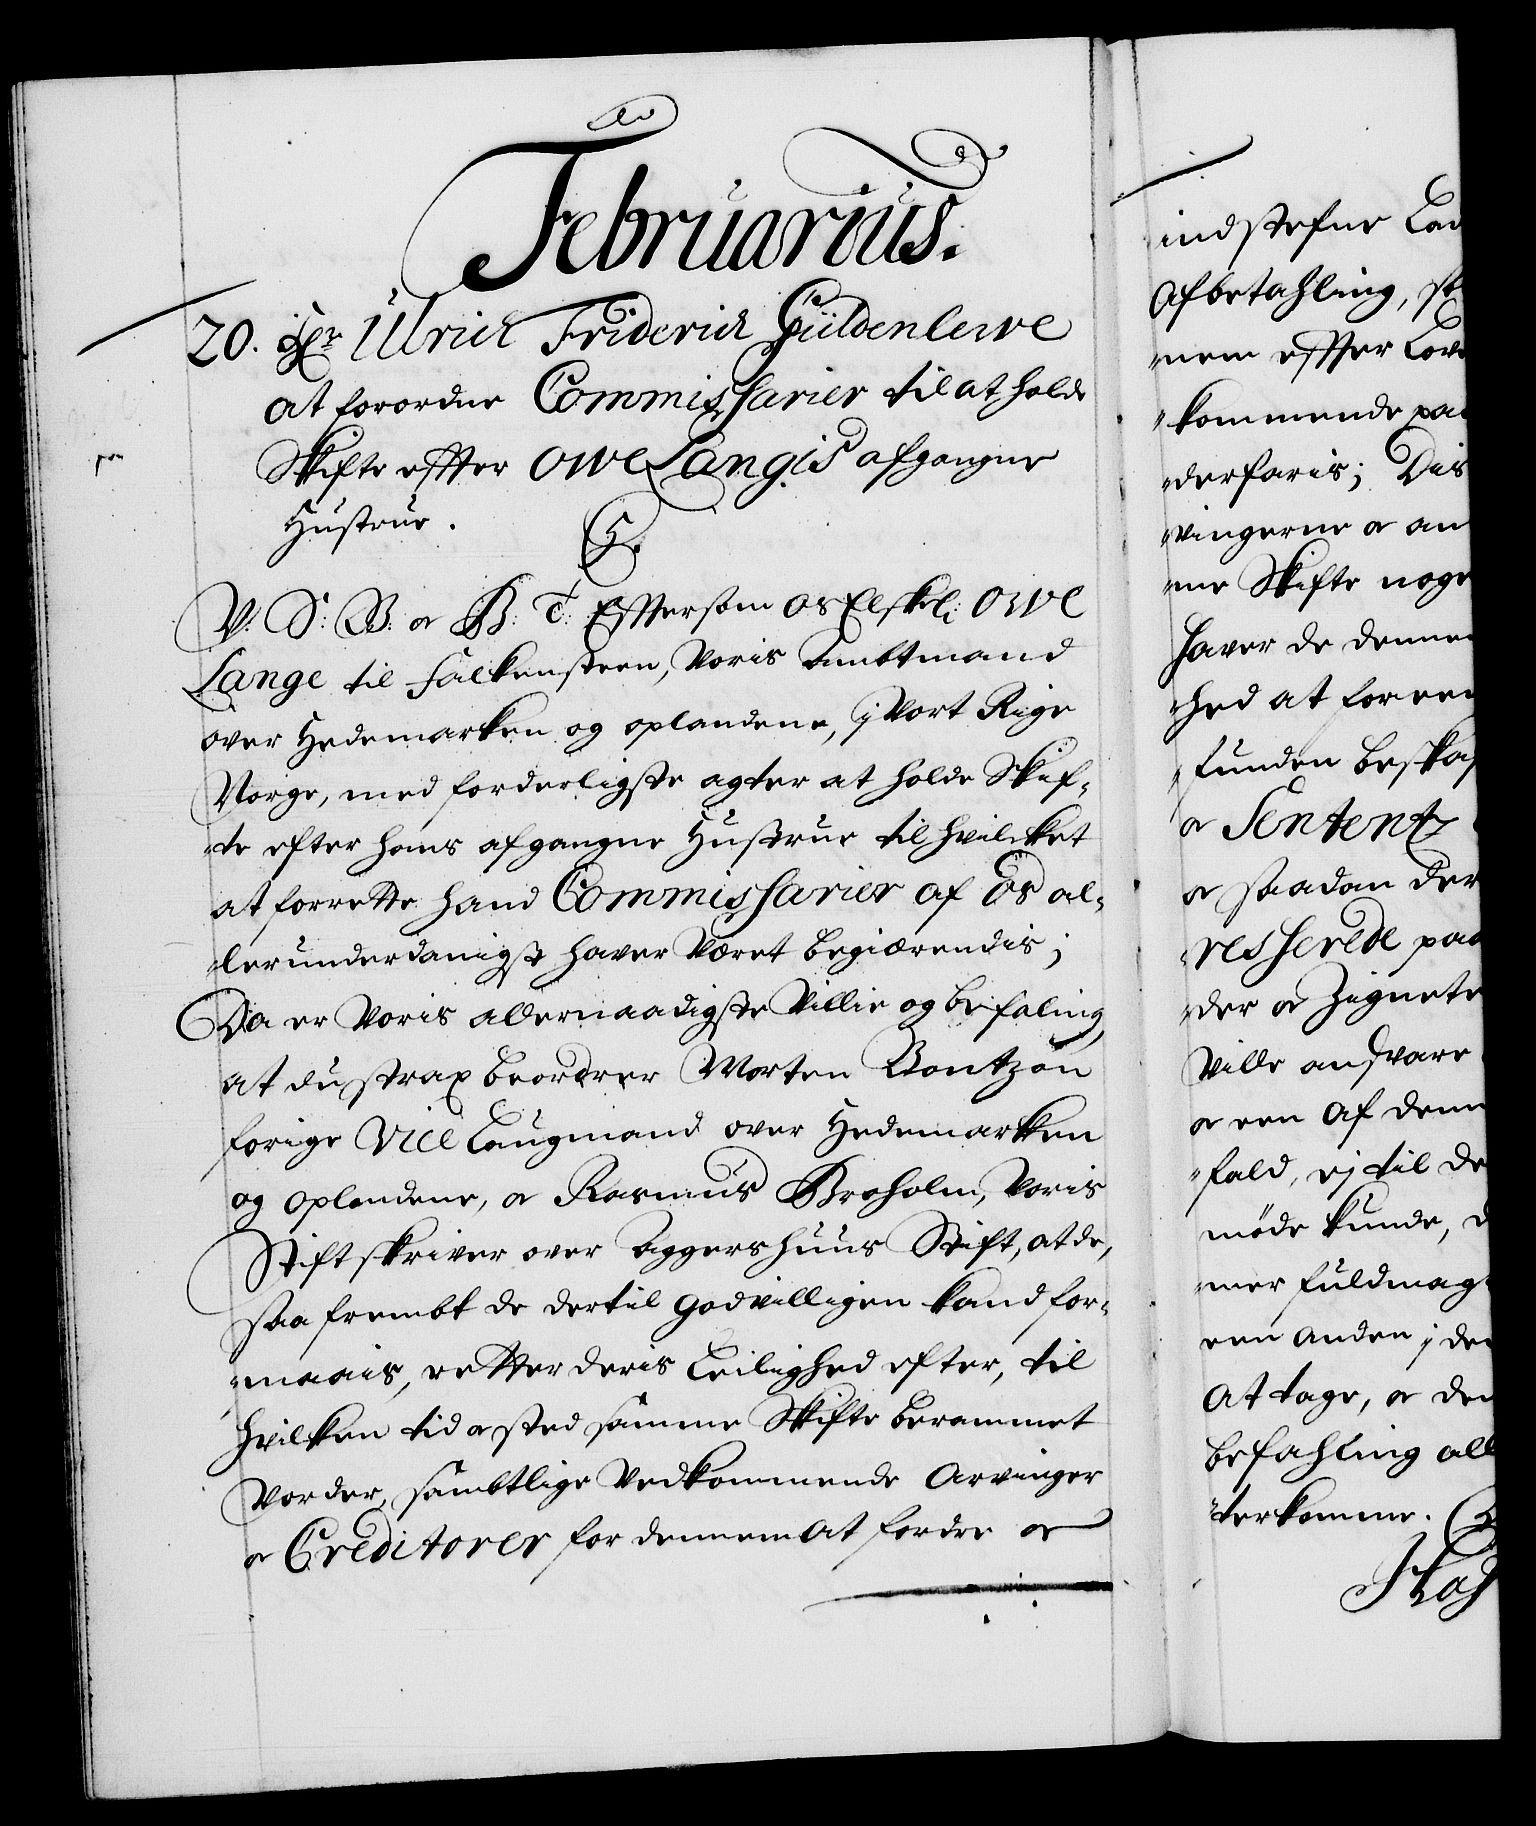 Februarius.
20. Hr Ulrich Friderich Güldenlewe
at forordne Commissarier til at holde
Skifte effter Owe Langis afgangne
Hustrue.
C5.
V: S: B: oc B: T: Efftersom os Elskel: Owe
Lange til Falkensteen, Voris Ambtmand
over Hedemarken og oplandene, j Vort Rige
Norge, med forderligste agter at holde Skif-
te efter hans afgangne Hustrue til hvilcket
at forrette hand Commissarier af Os al-
lerunderdanigst haver Været begiærendis;
Da er Voris allernaadigste Villie og befaling,
at du strax beordrer Morten Bontzøn
forige Vice Laugmand over Hedemarken
og Oplandene, oc Rasmus Broholm, Voris
Stiftskriver over Aggershuus Stift, at de,
saa frembt de dertil godvilligen kand for-
maais, retter deris Leilighed efter, til
hvilken tid oc sted samme Skifte berammet
Vorder, sambtlige Vedkommende Arvinger
oc Creditorer for dennem at fordre oc
indstefne Lad
Afbetahling, st
nem effter Lov
kommende paa
derfaris; Dis
vingerne oc an
me Skifte noge
haver de denne
hed at foreen
funden beskaf
oc Sententz
oc saadan der
resserede paa
der oc Zignete
Ville andsvare
oc een af denn
fald, ej til de
møde kunde, d
mer fuldmagt
een anden j den
At tage, oc den
befahling all
terkomme.